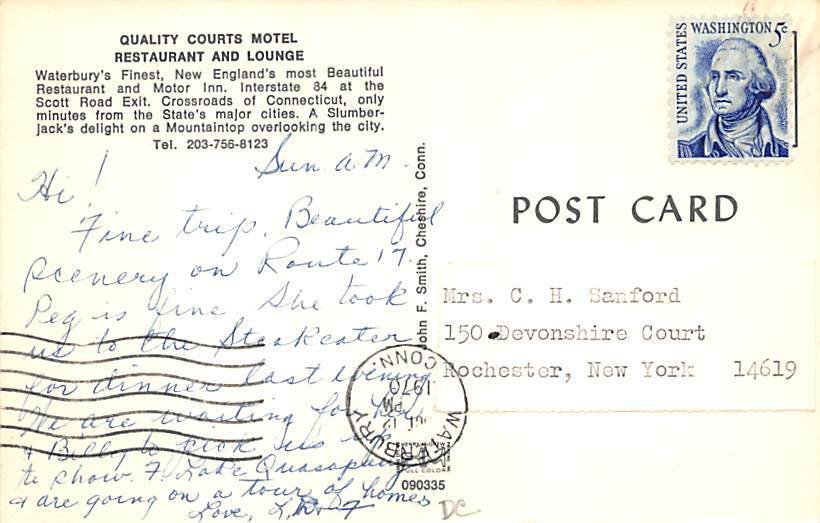 QUALITY COURTS MOTEL
RESTAURANT AND LOUNGE
Waterbury's Finest, New England's most Beautiful
Restaurant and Motor Inn. Interstate 84 at the
Scott Road Exit. Crossroads of Connecticut, only
minutes from the State's major cities. A Slumber-
Jack's delight on a Mountaintop overlooking the city.
Tel. 203-756-8123
Sun a.m.
Hi!
Fine trip. Beautiful
scenery on Route 17.
Peg is fine. She took
us to the Steakeater
for dinner last evening
We are waiting for her
& Billy to pick us up
to show. Lake Quasapaug
& are going on a tour of homes
Love,
John F. Smith, Cheshire, Conn.
UNITED STATES
WASHINGTON 5c
POST CARD
Mrs. C. H. Sanford
150 Devonshire Court
Rochester, New York 14619
WATERBURY
CONN.
PM
1970
090335
DC